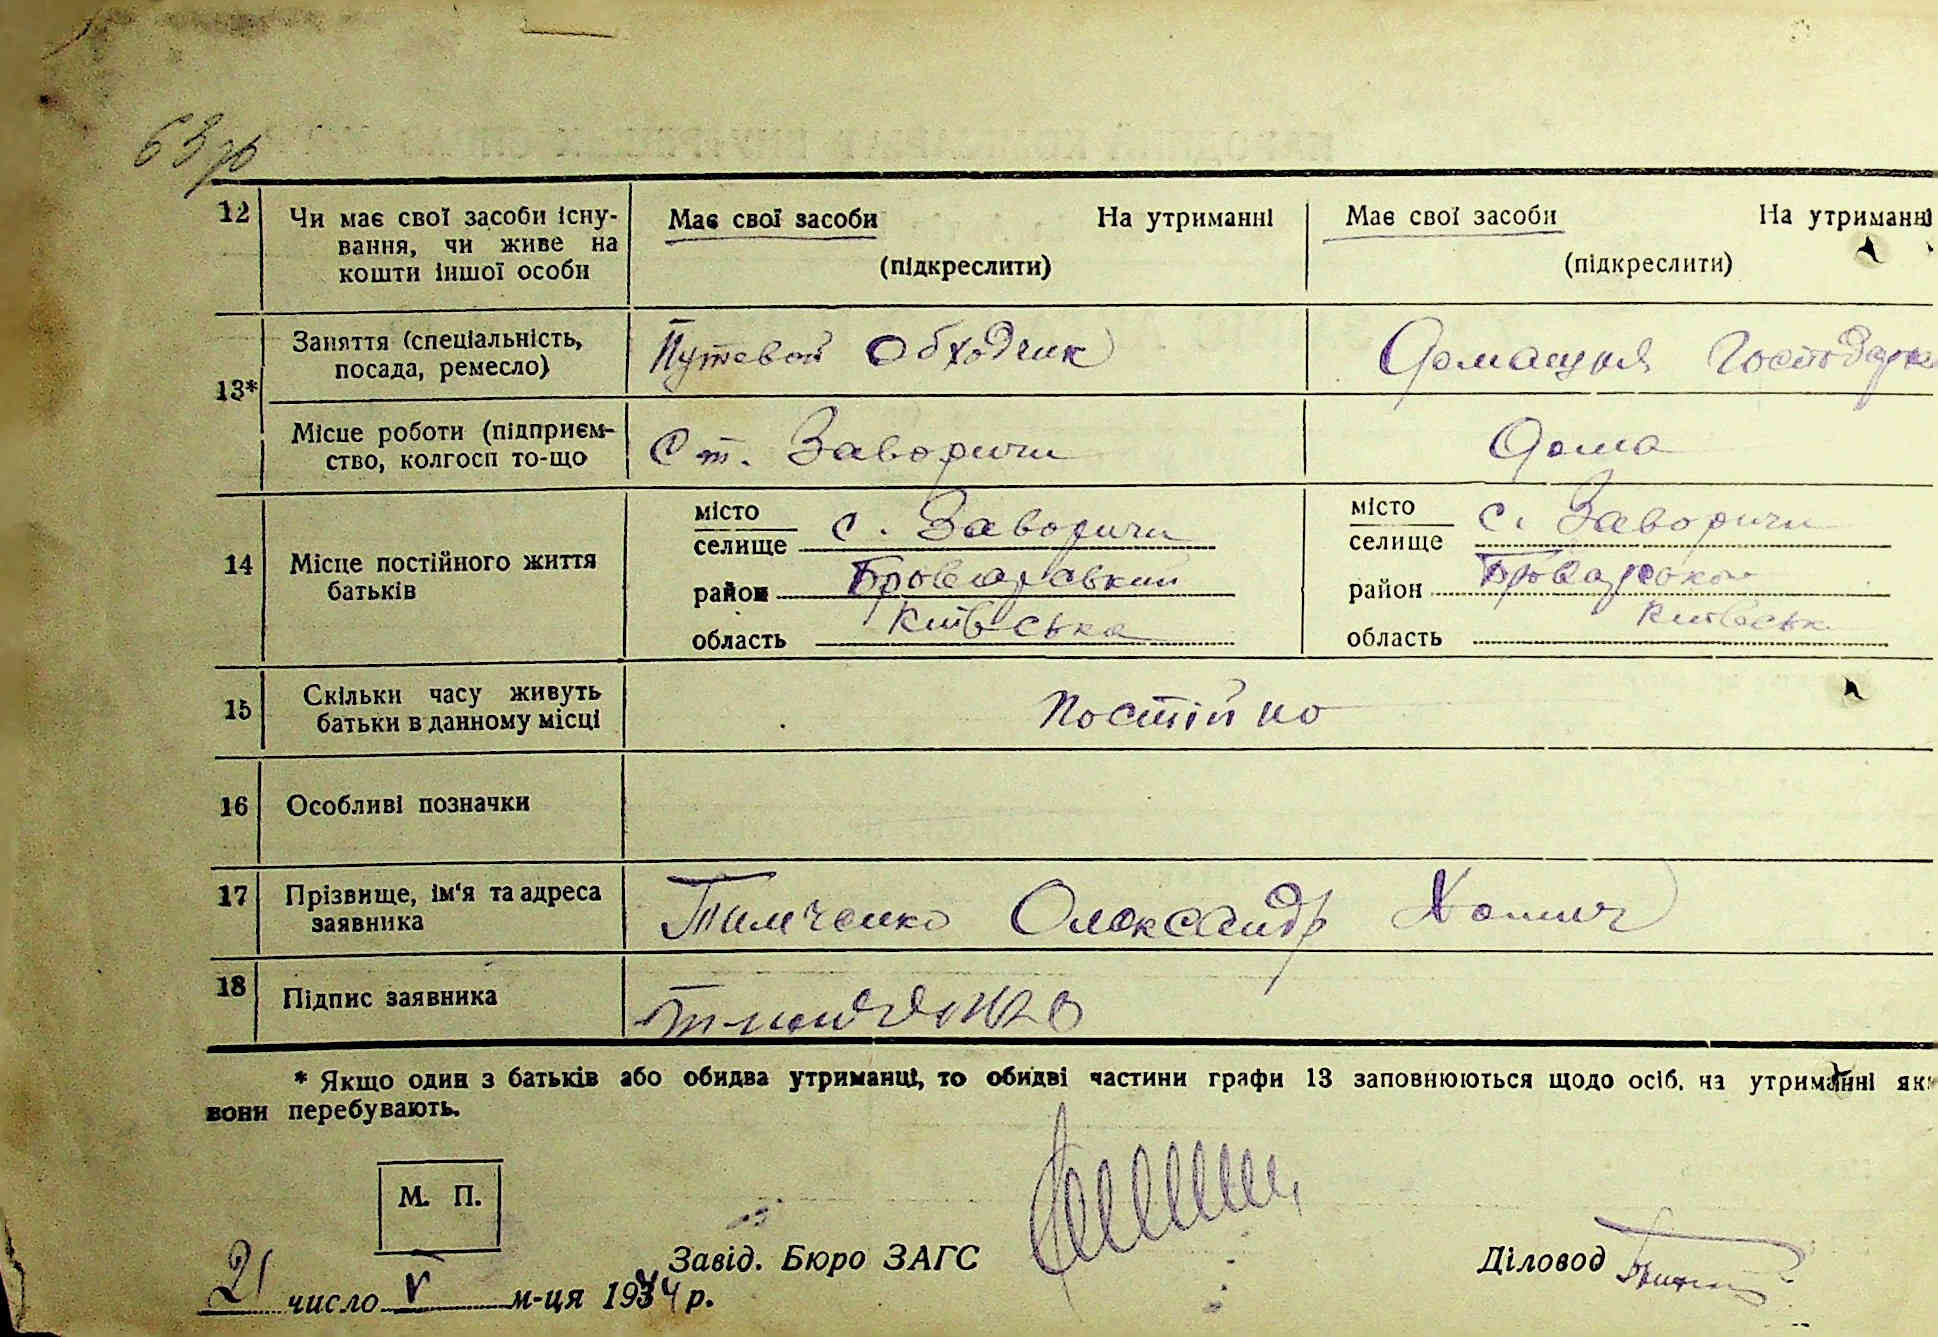 63 р
12 Чи має свої засоби існу- Має свої засоби На утриманні Має свої засоби На утриманні
вання, чи живе на
кошти іншої особи (підкреслити) (підкреслити)
Заняття (спеціальність, Путевой Обходчик Домашня Господарка
посада, ремесло)
13*
Місце роботи (підприєм- Ст. Заворичи Дома
ство, колгосп то-що
місто с. Заворичи місто с. Заворичи
селище селище
14 Місце постійного життя район Броварський район
батьків область Київська область Київськ
15 Скільки часу живуть постійно
батьки в данному місці
16 Особливі позначки
17 Прізвище, ім'я та адреса Тимченко Олександр Хомич
заявника
18 Підпис заявника
* Якщо один з батьків або обидва утриманці, то обидві частини графи 13 заповнюються щодо осіб, на утриманні як
вони перебувають.
М. П.
Завід. Бюро ЗАГС Діловод
21 число V м-ця 1944 р.